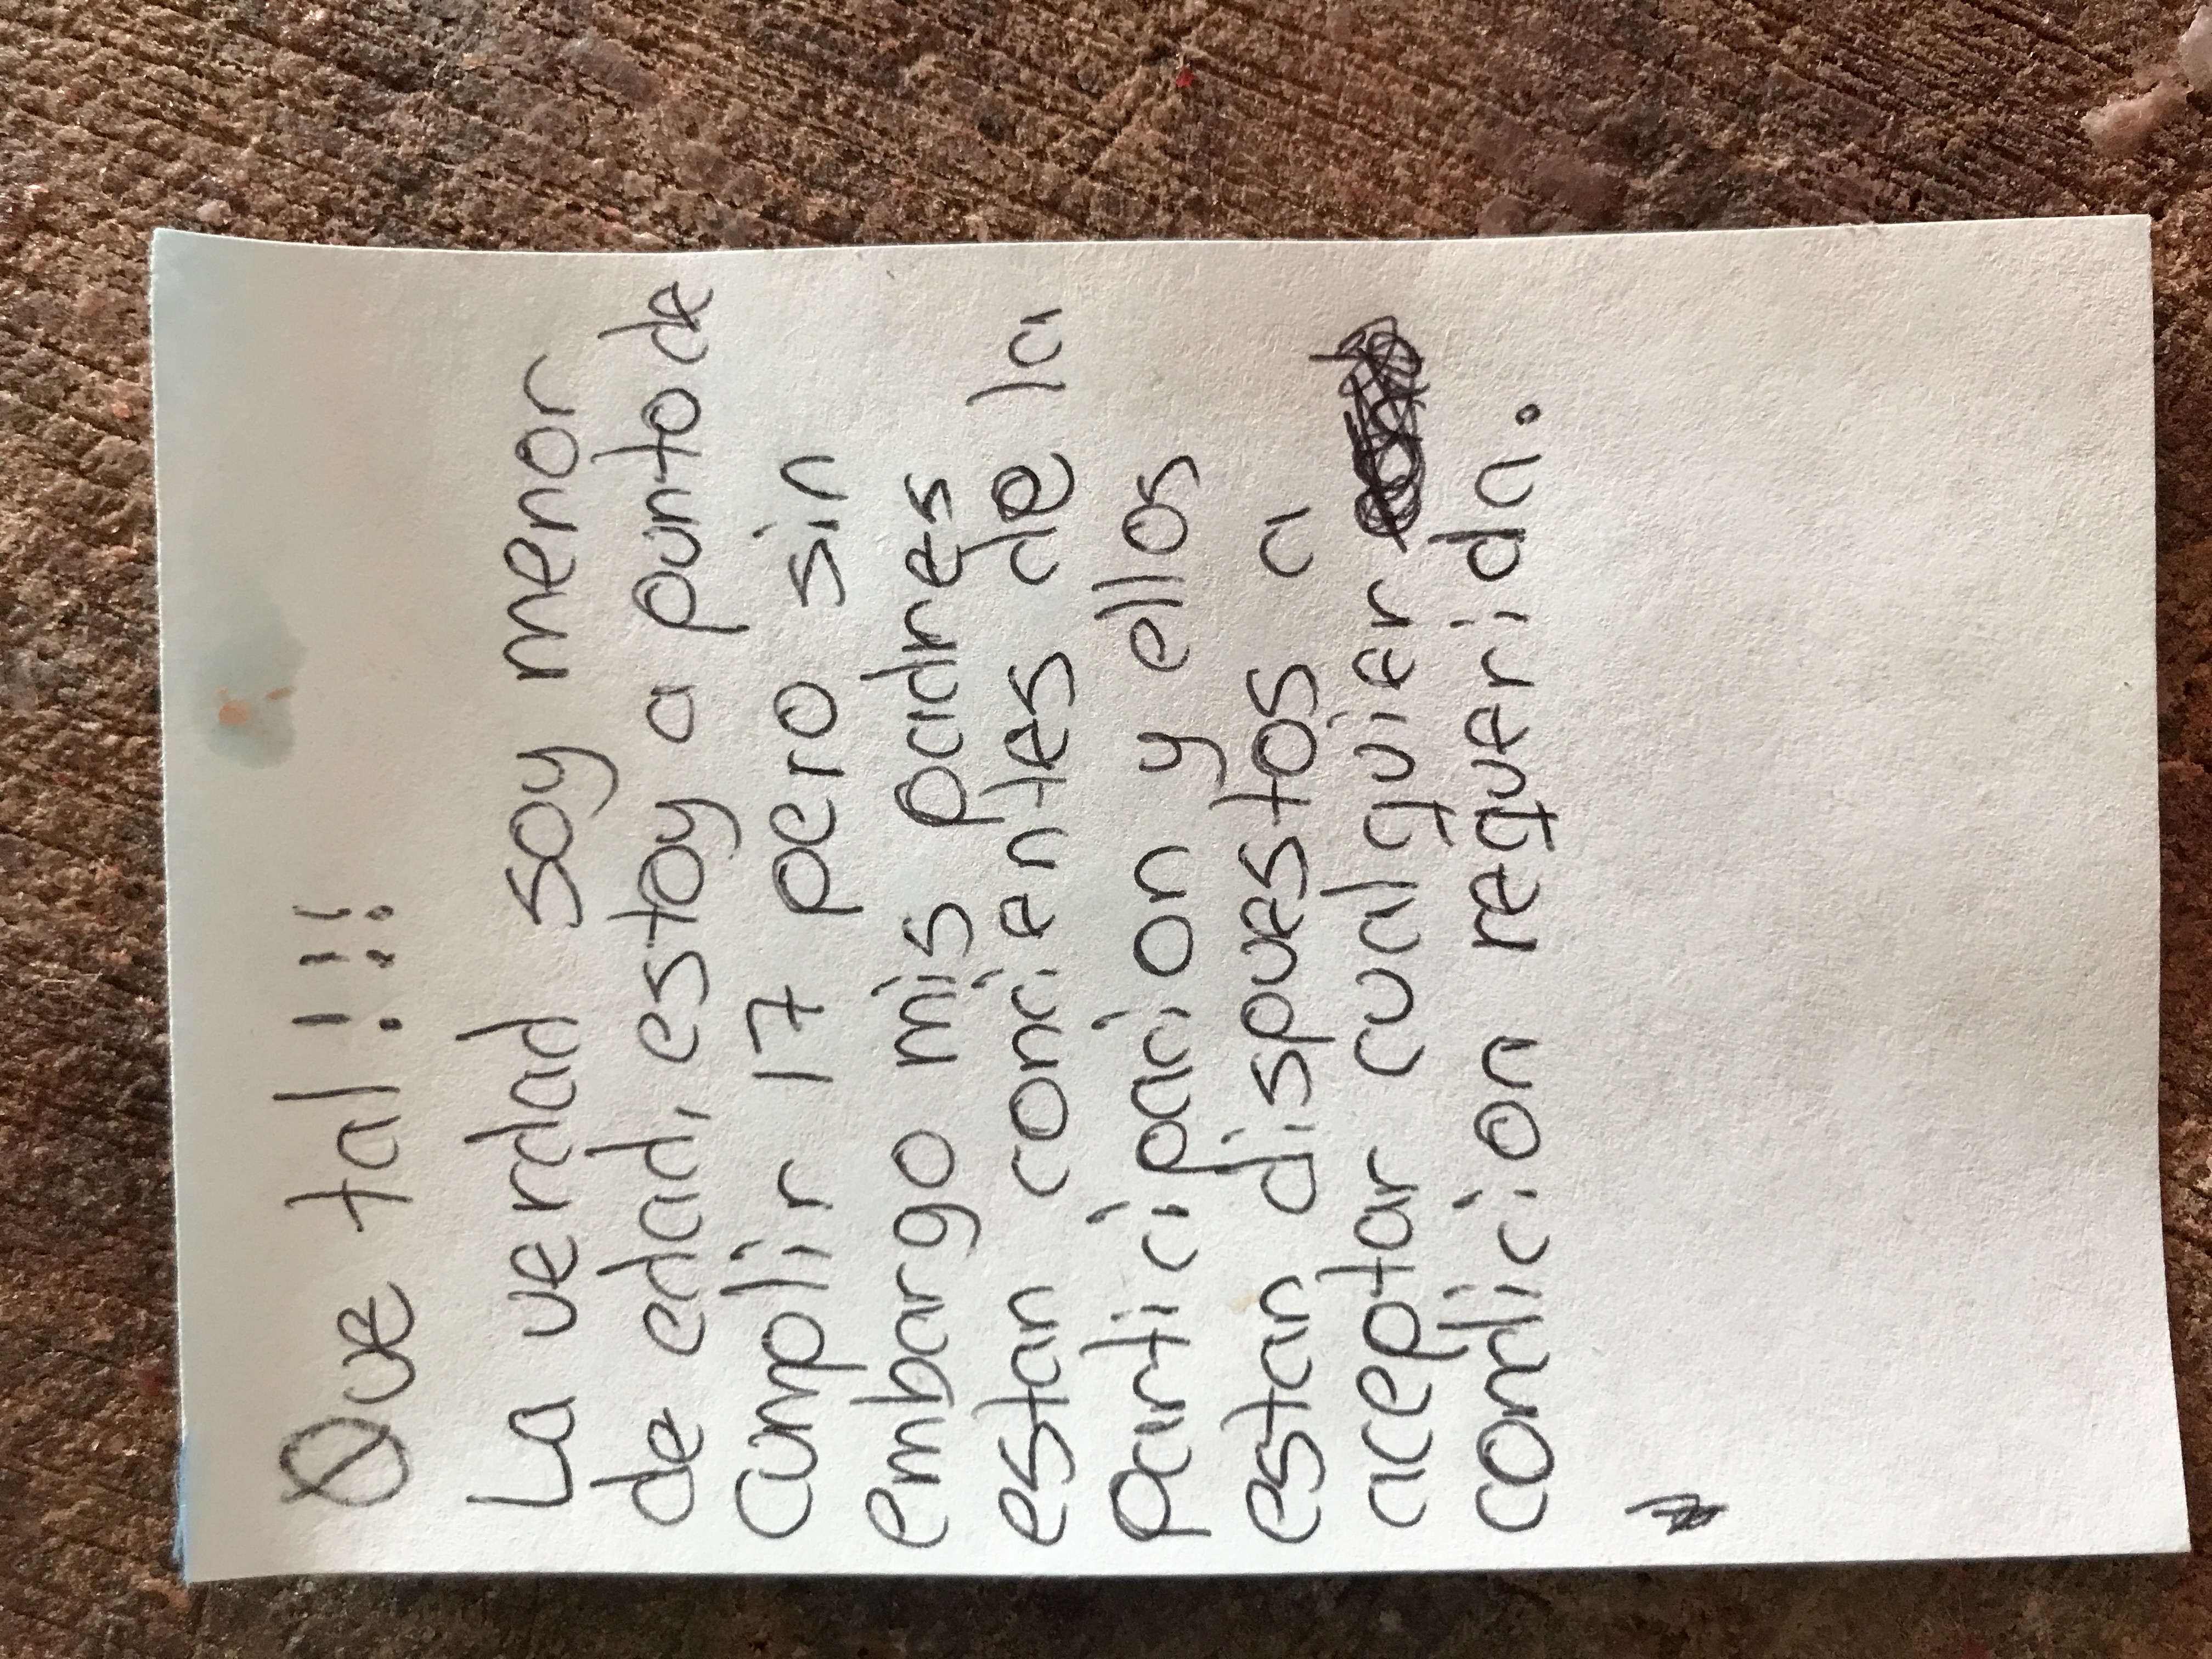 Que tal!!!!
La verdad soy menor
de edad, estoy a punto de
cumplir 17 pero sin
embargo mis padres
estan concientes de la
participacion y ellos
estan dispuestos a
aceptar cualquier
condicion requerida.